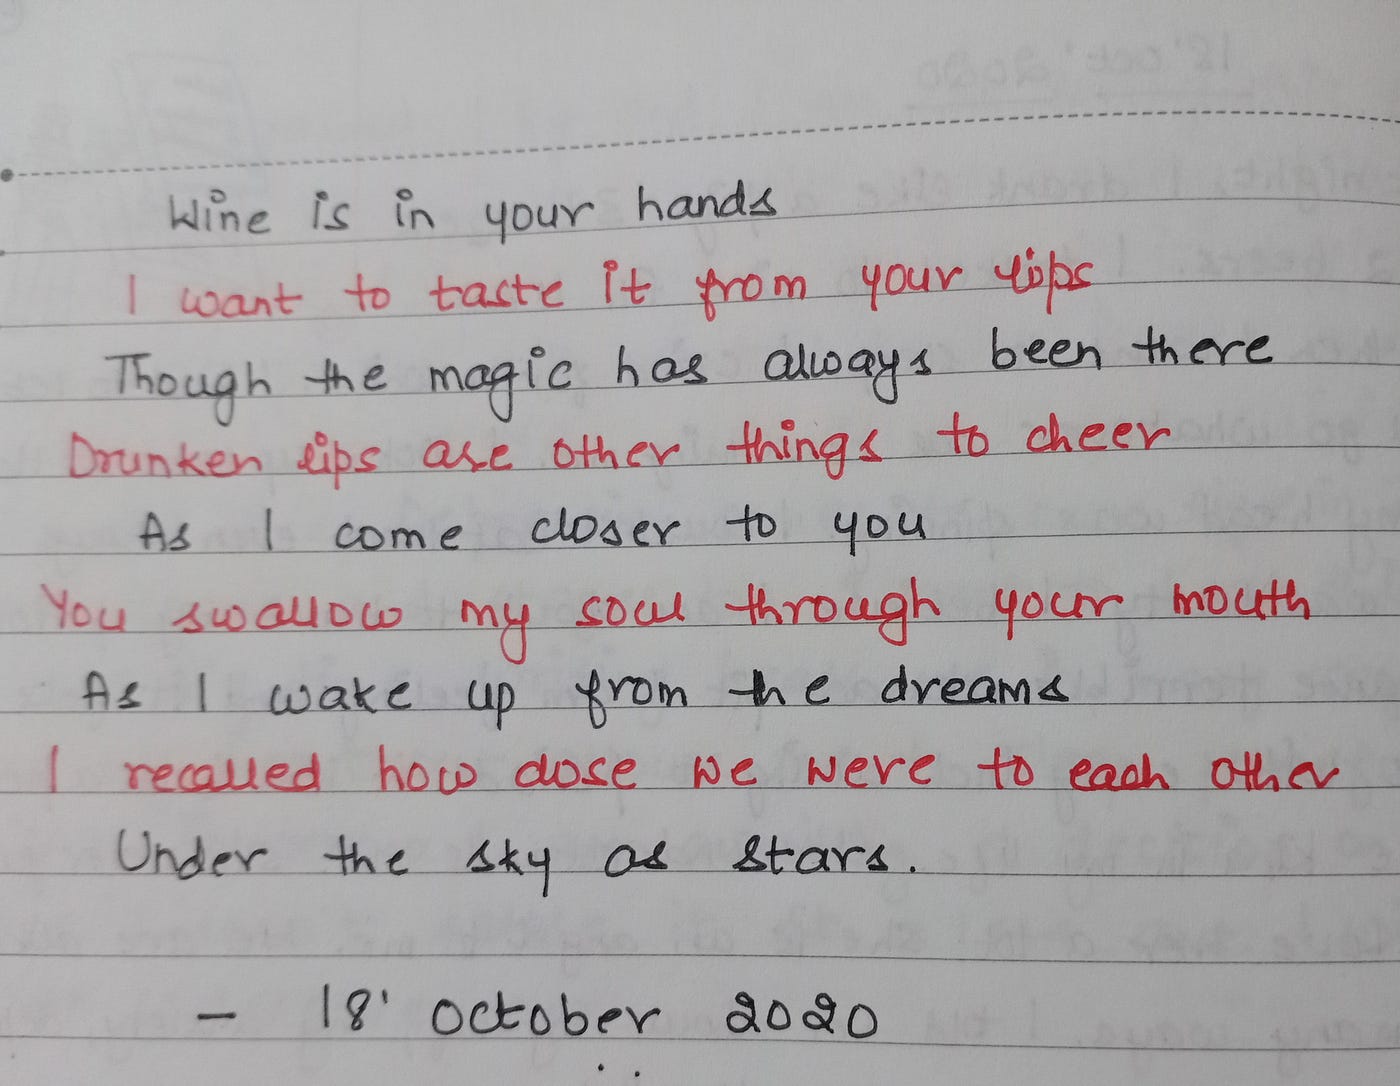 Wine is in your hands
I want to taste it from your lips
Though the magic has always been there
Drunken lips are other things to cheer
As I come closer to you
You swallow my soul through your mouth
As I wake up from the dreams
I recalled how close we were to each other
Under the sky as stars.
- 18' October 2020